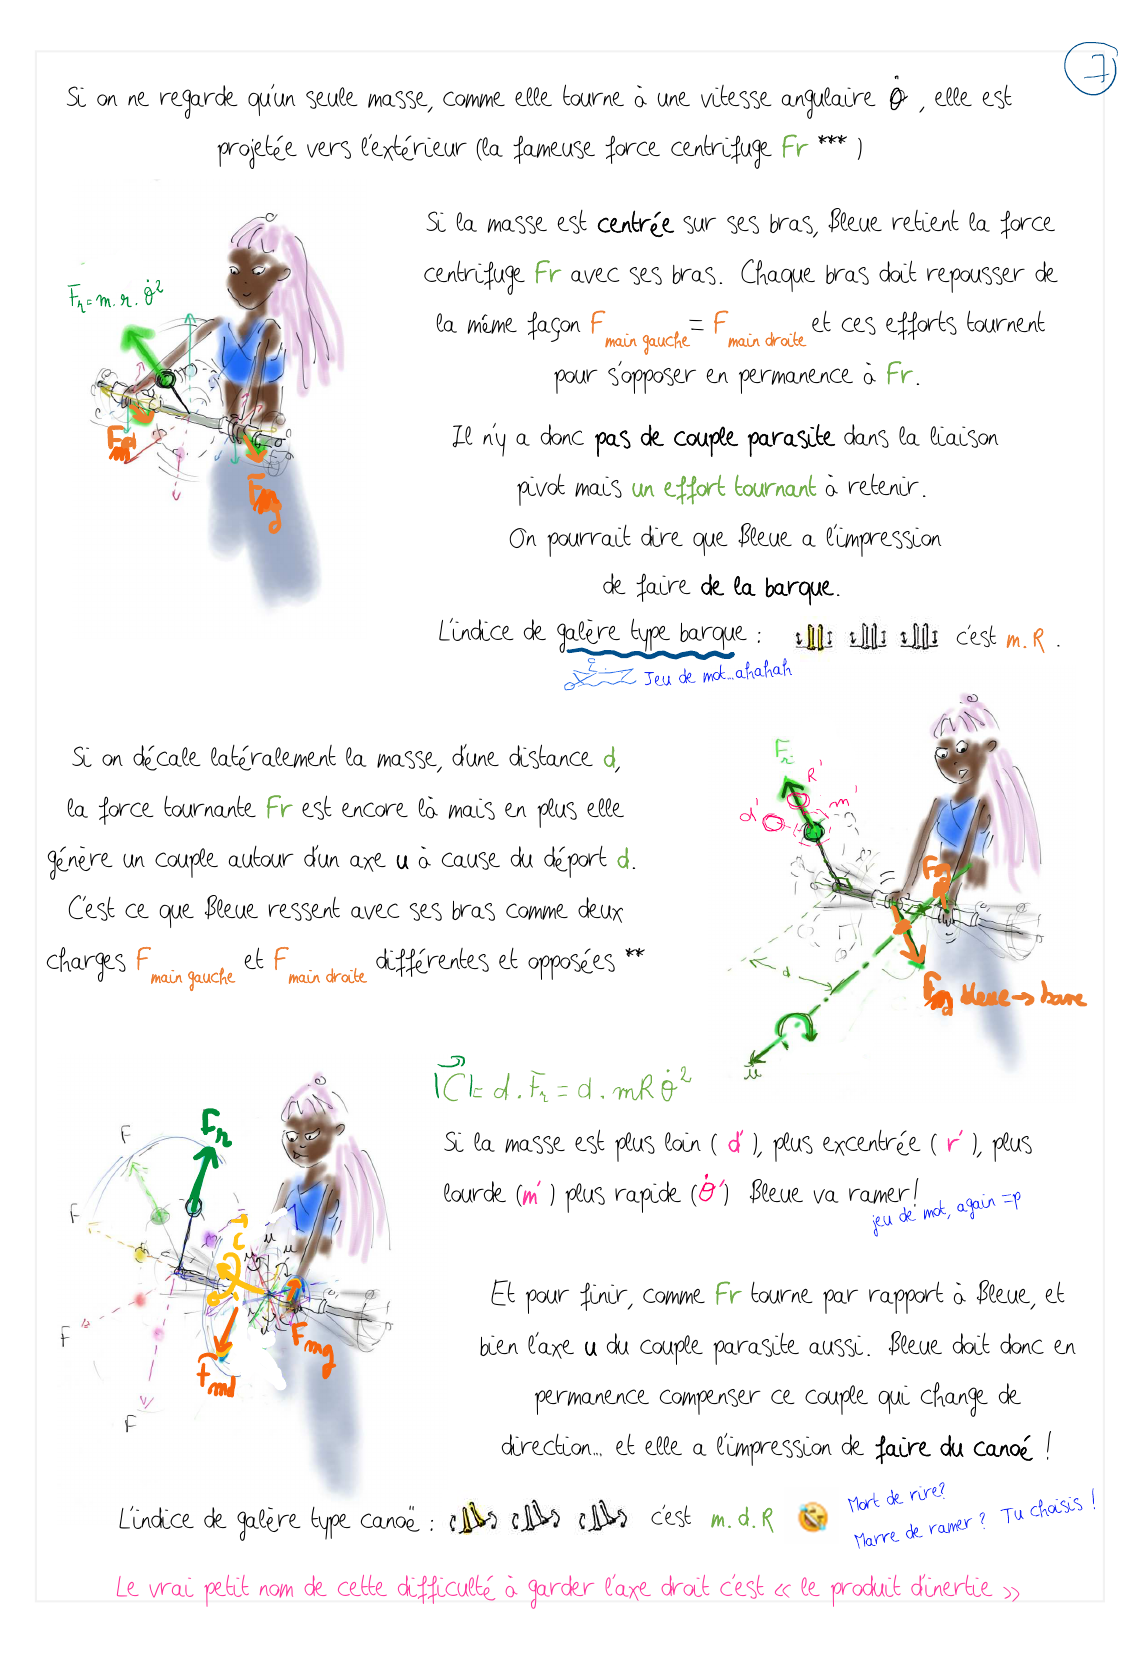 7
Si on ne regarde qu'un seule masse, comme elle tourne à une vitesse angulaire θ̇ , elle est
projetée vers l'extérieur (la fameuse force centrifuge Fr *** )
Si la masse est centrée sur ses bras, Bleue retient la force
centrifuge Fr avec ses bras. Chaque bras doit repousser de
la même façon F main gauche = F main droite et ces efforts tournent
pour s'opposer en permanence à Fr.
Fr = m. r. θ̇²
Fmd
Fmg
Il n'y a donc pas de couple parasite dans la liaison
pivot mais un effort tournant à retenir.
On pourrait dire que Bleue a l'impression
de faire de la barque.
L'indice de galère type barque : c'est m.R .
Jeu de mot...ahahah
Si on décale latéralement la masse, d'une distance d,
la force tournante Fr est encore là mais en plus elle
génère un couple autour d'un axe u à cause du déport d.
C'est ce que Bleue ressent avec ses bras comme deux
charges F main gauche et F main droite différentes et opposées **
Fr
R'
m'
d'
d
u
Fmg bleue → barre
|C|= d . Fr = d . mR θ̇²
Si la masse est plus loin ( d' ), plus excentrée ( r' ), plus
lourde (m' ) plus rapide (θ̇') Bleue va ramer!
jeu de mot, again =p
Fr
F
F
F
F
C
u
u
Fmg
Fmd
Et pour finir, comme Fr tourne par rapport à Bleue, et
bien l'axe u du couple parasite aussi. Bleue doit donc en
permanence compenser ce couple qui change de
direction... et elle a l'impression de faire du canoé !
L'indice de galère type canoë : c'est m.d.R
Mort de rire?
Marre de ramer ? Tu choisis !
Le vrai petit nom de cette difficulté à garder l'axe droit c'est « le produit d'inertie »